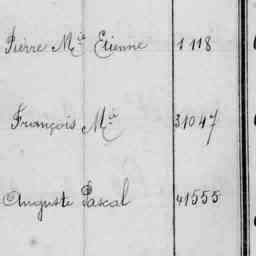 Pierre Mie Etienne 1118
François Mie 31047
Auguste Pascal 41555